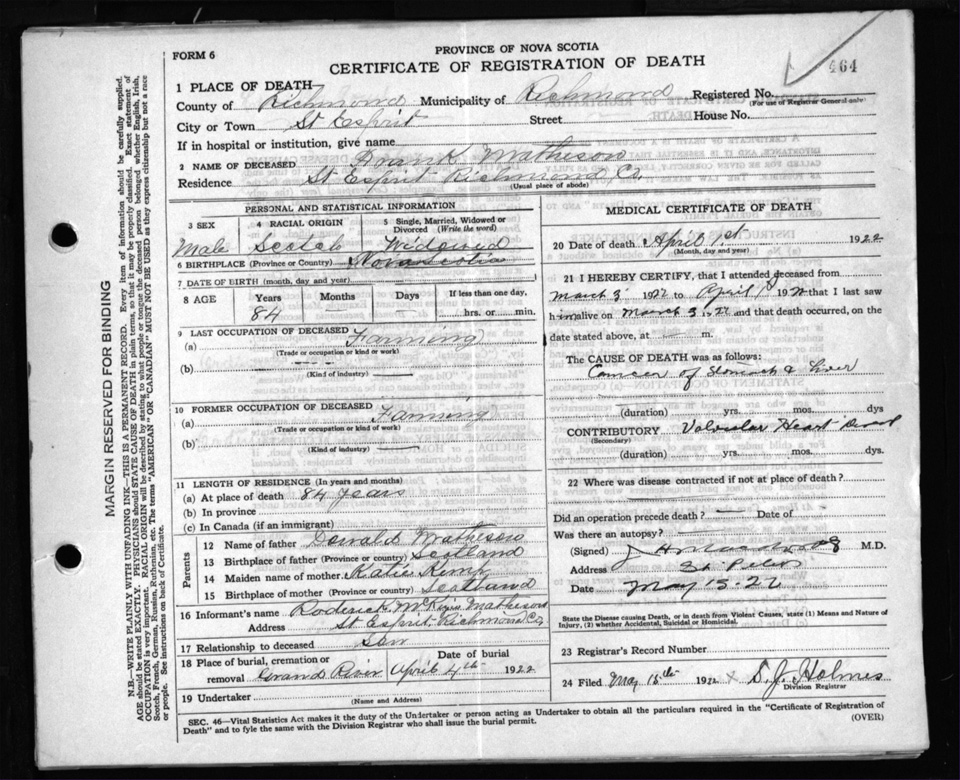 FORM 6
PROVINCE OF NOVA SCOTIA
CERTIFICATE OF REGISTRATION OF DEATH
464
1 PLACE OF DEATH
County of Richmond Municipality of Richmond Registered No.
(For use of Registrar General only)
City or Town St Esprit Street House No.
If in hospital or institution, give name
2 NAME OF DECEASED Matheson
Residence St Esprit Richmond Co.
(Usual place of abode)
PERSONAL AND STATISTICAL INFORMATION
3 SEX 4 RACIAL ORIGIN 5 Single, Married, Widowed or Divorced (Write the word)
Male Scotch Widowed
6 BIRTHPLACE (Province or Country) Nova Scotia
7 DATE OF BIRTH (month, day and year)
8 AGE Years Months Days If less than one day,
84 — — hrs. or min.
9 LAST OCCUPATION OF DECEASED
(a) Farming
(Trade or occupation or kind of work)
(b)
(Kind of industry)
10 FORMER OCCUPATION OF DECEASED
(a) Farming
(Trade or occupation or kind of work)
(b)
(Kind of industry)
11 LENGTH OF RESIDENCE (In years and months)
(a) At place of death 84 years
(b) In province
(c) In Canada (if an immigrant)
Parents
12 Name of father Donald Matheson
13 Birthplace of father (Province or country) Scotland
14 Maiden name of mother Katie Kemp
15 Birthplace of mother (Province or country) Scotland
16 Informant's name Roderick Matheson
Address St Esprit Richmond Co,
17 Relationship to deceased Son
18 Place of burial, cremation or removal Grand River Date of burial April 4th 1922
19 Undertaker
(Name and Address)
MEDICAL CERTIFICATE OF DEATH
20 Date of death April 1st 1922
(Month, day and year)
21 I HEREBY CERTIFY, that I attended deceased from
March 3 1922 to April 1 1922 that I last saw
him alive on March 3, 22 and that death occurred, on
date stated above, at — m.
The CAUSE OF DEATH was as follows:
Cancer of Stomach & Liver
(duration) yrs. mos. dys
CONTRIBUTORY Valvular Heart
(Secondary)
(duration) yrs. mos. dys.
22 Where was disease contracted if not at place of death?
Did an operation precede death? — Date of
Was there an autopsy? —
(Signed) M.D.
Address St. Peters
Date May 15-22
State the Disease causing Death, or in death from Violent Causes, state (1) Means and Nature of Injury, (2) whether Accidental, Suicidal or Homicidal.
23 Registrar's Record Number
24 Filed May 15th 1922 x S. J. Holmes
Division Registrar
SEC. 46—Vital Statistics Act makes it the duty of the Undertaker or person acting as Undertaker to obtain all the particulars required in the "Certificate of Registration of
Death" and to fyle the same with the Division Registrar who shall issue the burial permit.
(OVER)
MARGIN RESERVED FOR BINDING
N.B.—WRITE PLAINLY WITH UNFADING INK—THIS IS A PERMANENT RECORD. Every item of information should be carefully supplied.
AGE should be stated EXACTLY. PHYSICIANS should STATE CAUSE OF DEATH in plain terms, so that it may be properly classified. Exact statement of
OCCUPATION is very important. RACIAL ORIGIN will be described by stating to what people or tongue the deceased person belonged whether English, Irish,
Scotch, French, German, Russian, Ruthenian, etc. The terms "AMERICAN" OR "CANADIAN" MUST NOT BE USED as they express citizenship but not a race
or people. See instructions on back of Certificate.